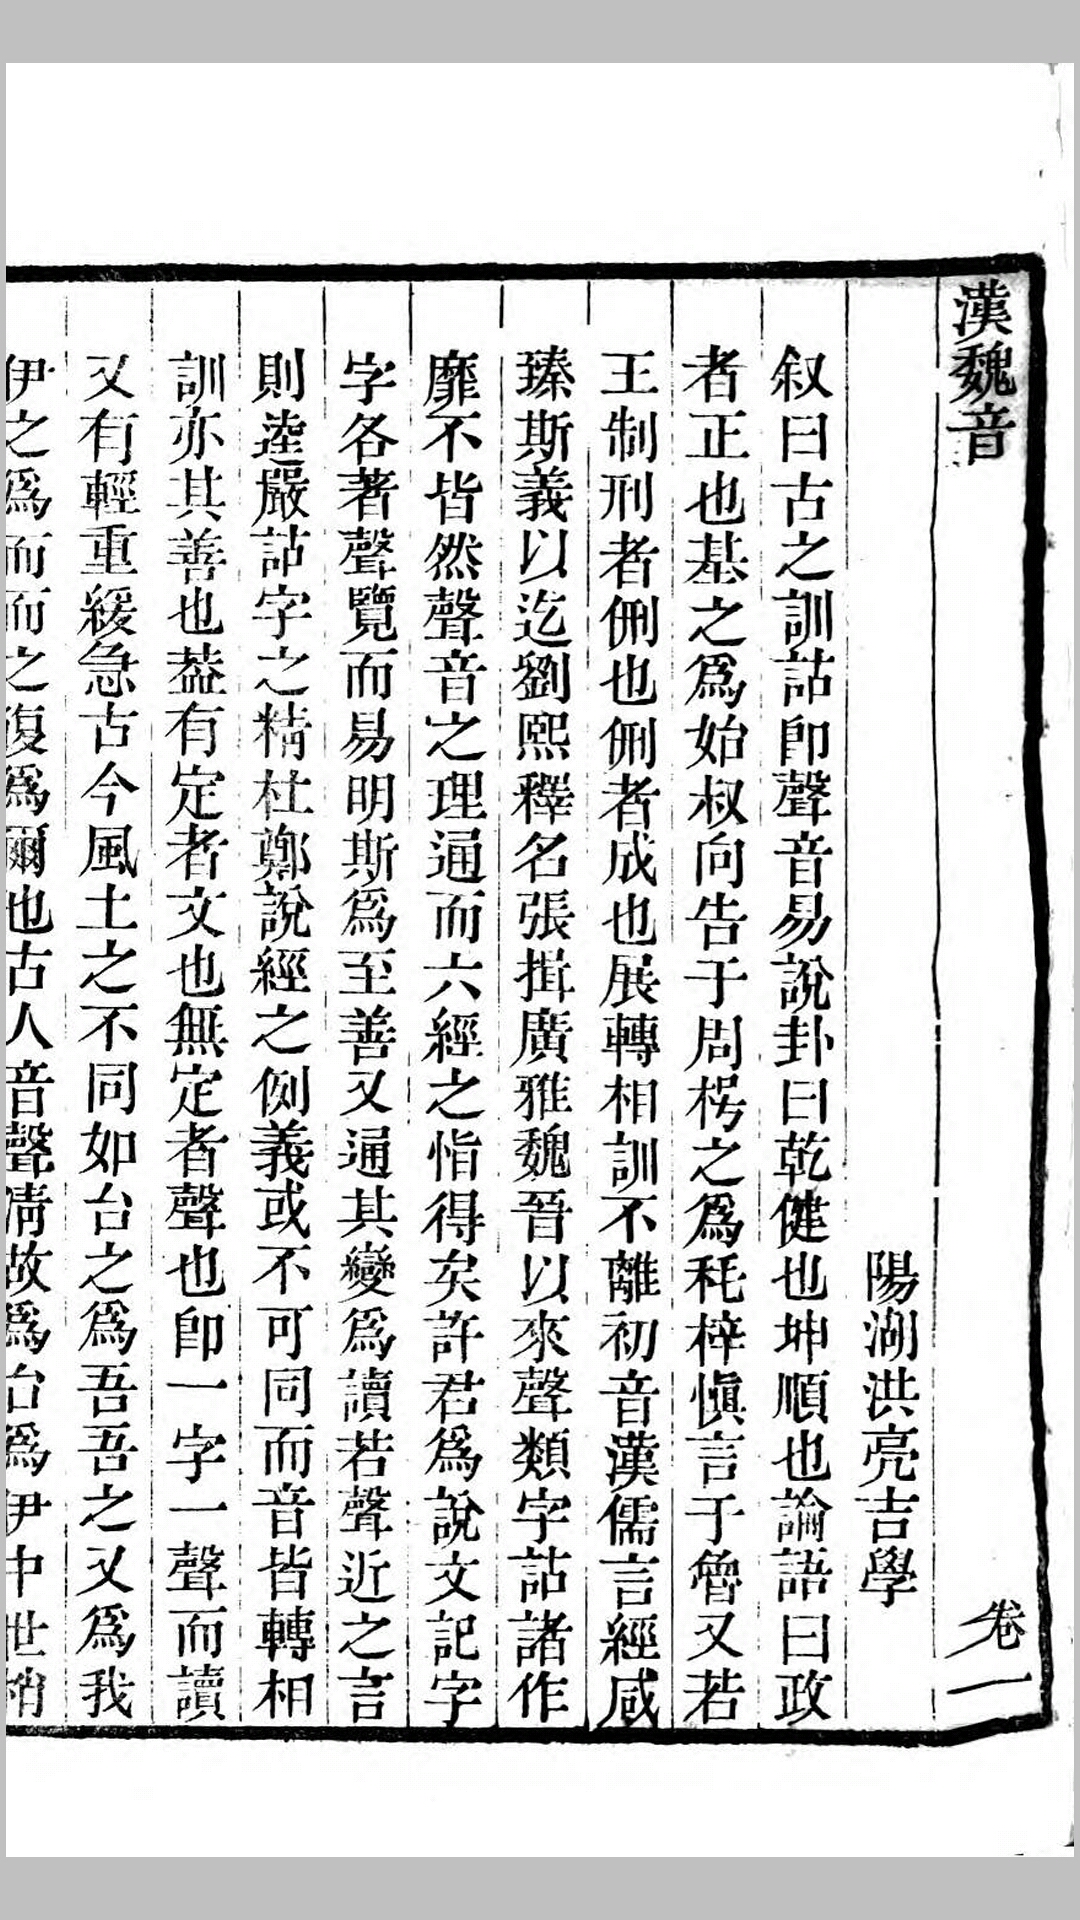 漢魏音
卷一
陽湖洪亮吉學
叙曰古之訓詁卽聲音易說卦曰乾健也坤順也論語曰政
者正也基之爲始叔向告于周楛之爲秏梓愼言于魯又若
王制刑者侀也侀者成也展轉相訓不離初音漢儒言經咸
臻斯義以迄劉熙釋名張揖廣雅魏晉以來聲類字詁諸作
靡不皆然聲音之理通而六經之恉得矣許君爲說文記字
字各著聲覽而易明斯爲至善又通其變爲讀若聲近之言
則逵嚴詁字之精杜鄭說經之例義或不可同而音皆轉相
訓亦其善也葢有定者文也無定者聲也卽一字一聲而讀
又有輕重緩急古今風土之不同如台之爲吾吾之又爲我
伊之爲而而之復爲爾也古人音聲清故爲台爲伊中世稍